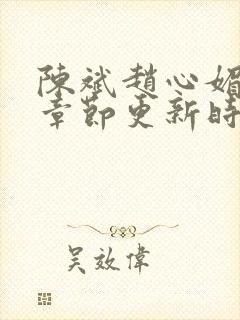 陳斌趙心媚
章節更新時
吴效偉